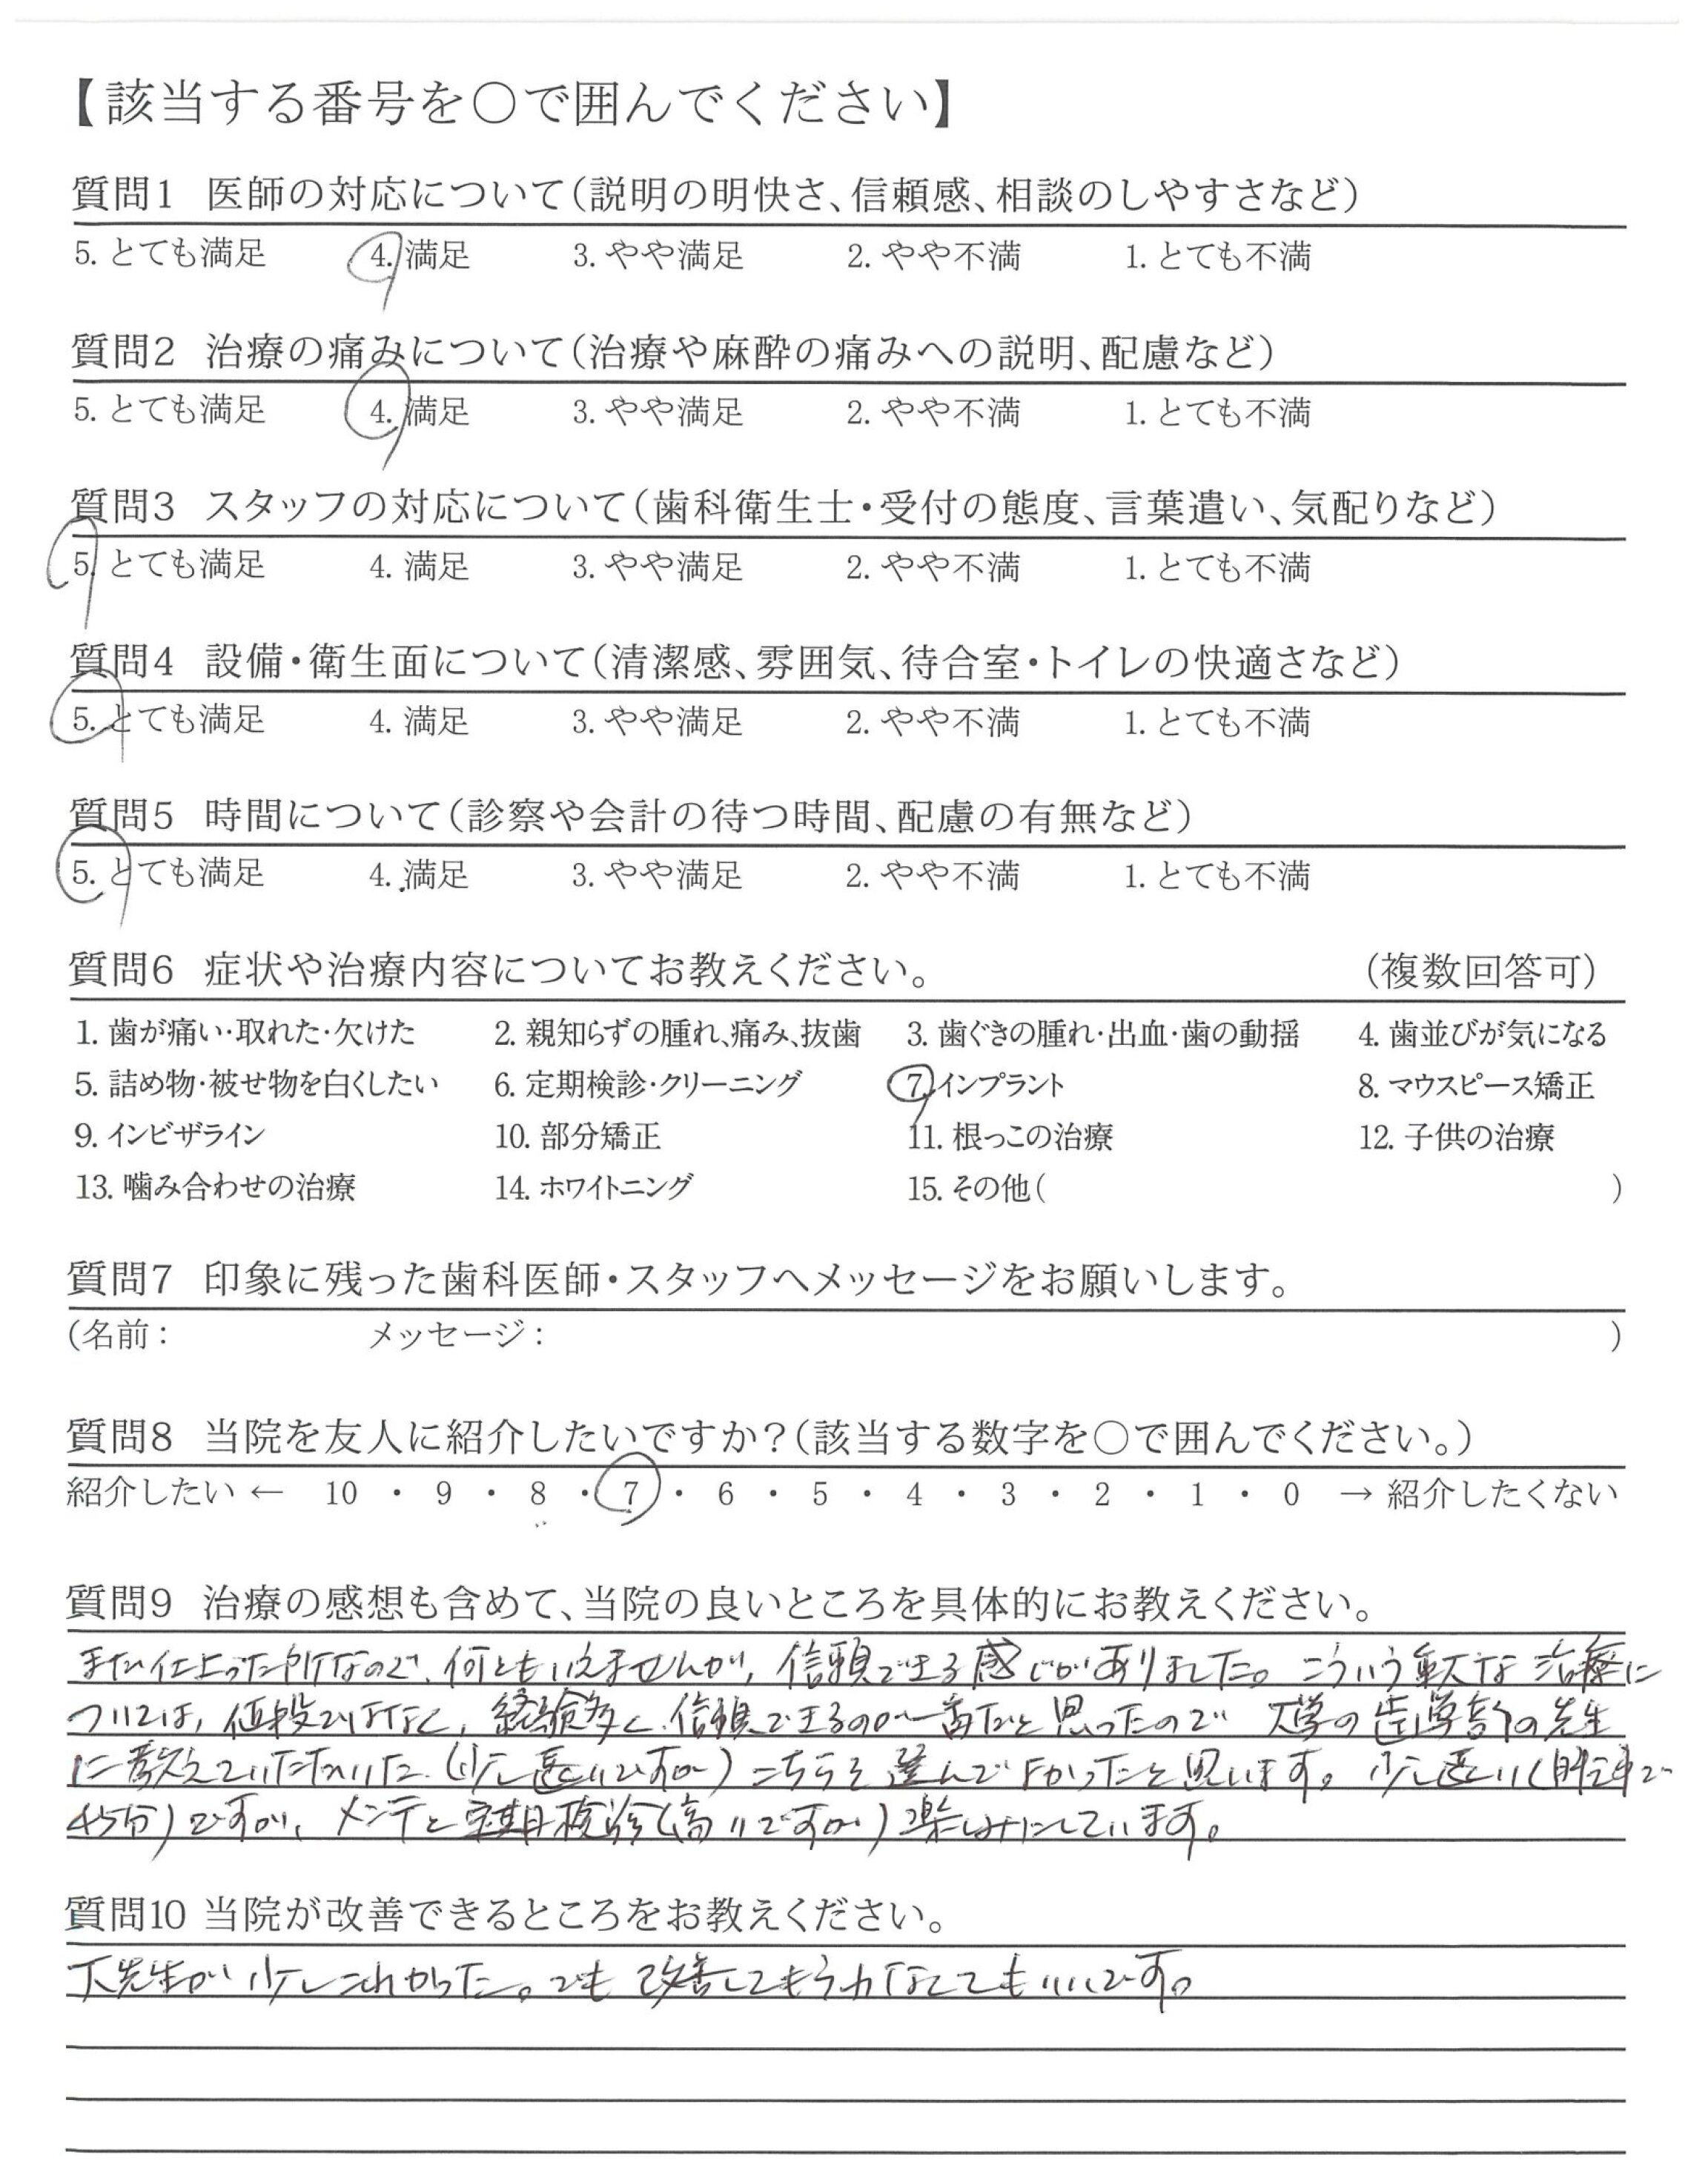 【該当する番号を〇で囲んでください】
質問1 医師の対応について(説明の明快さ、信頼感、相談のしやすさなど)
5. とても満足 4. 満足 3. やや満足 2. やや不満 1. とても不満
質問2 治療の痛みについて(治療や麻酔の痛みへの説明、配慮など)
5. とても満足 4. 満足 3. やや満足 2. やや不満 1. とても不満
質問3 スタッフの対応について(歯科衛生士・受付の態度、言葉遣い、気配りなど)
5. とても満足 4. 満足 3. やや満足 2. やや不満 1. とても不満
質問4 設備・衛生面について(清潔感、雰囲気、待合室・トイレの快適さなど)
5. とても満足 4. 満足 3. やや満足 2. やや不満 1. とても不満
質問5 時間について(診察や会計の待つ時間、配慮の有無など)
5. とても満足 4. 満足 3. やや満足 2. やや不満 1. とても不満
質問6 症状や治療内容についてお教えください。 (複数回答可)
1. 歯が痛い・取れた・欠けた 2. 親知らずの腫れ、痛み、抜歯 3. 歯ぐきの腫れ・出血・歯の動揺 4. 歯並びが気になる
5. 詰め物・被せ物を白くしたい 6. 定期検診・クリーニング 7. インプラント 8. マウスピース矯正
9. インビザライン 10. 部分矯正 11. 根っこの治療 12. 子供の治療
13. 噛み合わせの治療 14. ホワイトニング 15. その他( )
質問7 印象に残った歯科医師・スタッフへメッセージをお願いします。
(名前: メッセージ: )
質問8 当院を友人に紹介したいですか?(該当する数字を〇で囲んでください。)
紹介したい ← 10 ・ 9 ・ 8 ・ 7 ・ 6 ・ 5 ・ 4 ・ 3 ・ 2 ・ 1 ・ 0 → 紹介したくない
質問9 治療の感想も含めて、当院の良いところを具体的にお教えください。
まだ仕上った所なので、何ともいえませんが、信頼できる感じがありました。こういう重大な治療に
ついては、値段ではなく、経験多く、信頼できるのが一番だと思ったので 大学の歯学部の先生
に教えていただいた(少し遠いですが)こちらを選んでよかったと思います。少し遠い(自転車で
45分)ですが、メンテと定期検診(高いですが)楽しみにしています。
質問10 当院が改善できるところをお教えください。
先生が少しこわかった。でも改善してもらわなくてもいいです。